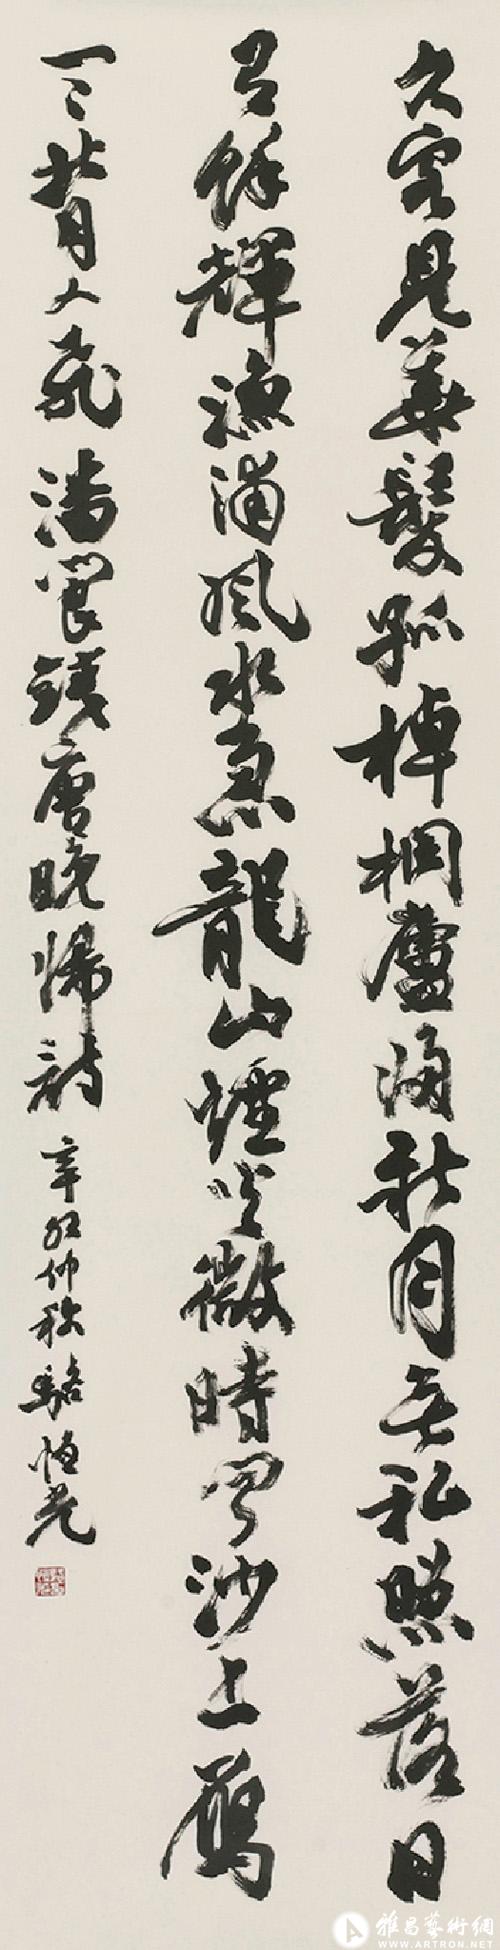 久客見華髮孤棹桐廬歸新月無私照落日
有餘輝漁浦風水急龍山煙火微時聞沙上雁
一〻背人飛 潘閬錢唐晚歸詩 辛卯仲秋 駱恒光
雅昌藝術網
WWW.ARTRON.NET